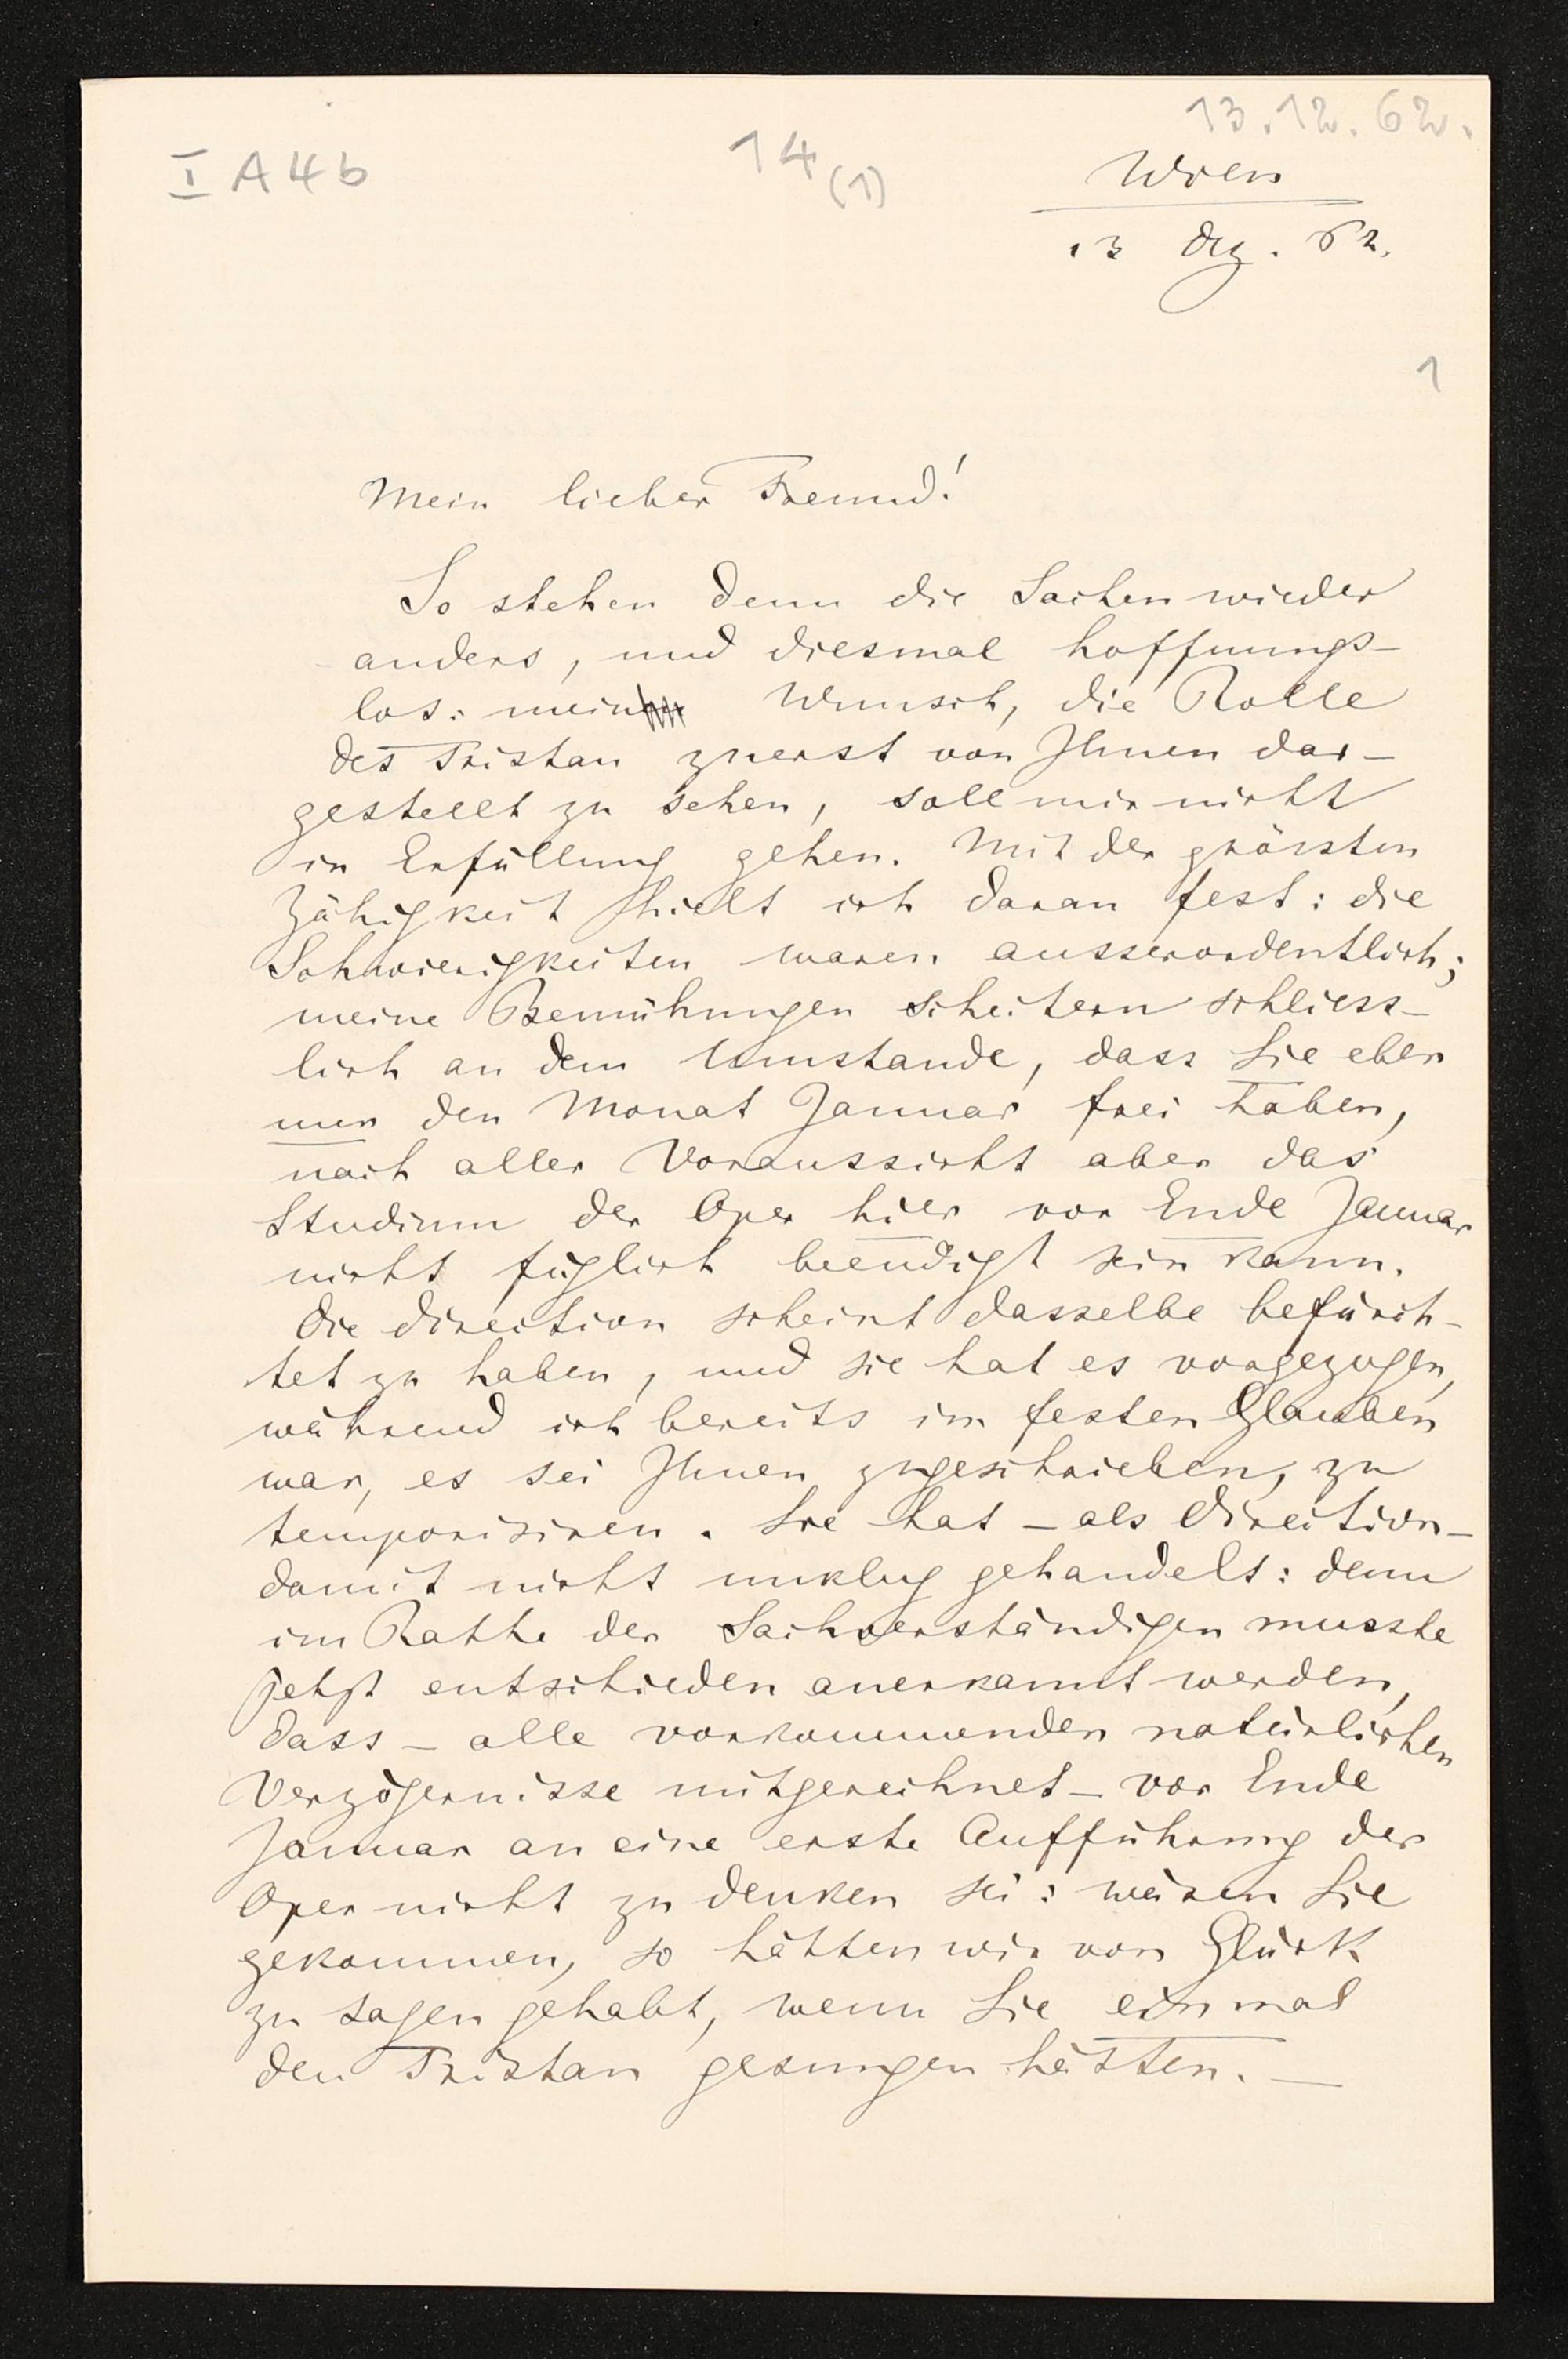 13.12.62.
I A 4 b
14 (1)
Wien
13 Dez. 62.
1
Mein lieber Freund!
So stehen denn die Sachen wieder
anders, und diesmal hoffnungs-
los: mein Wunsch, die Rolle
des Tristan zuerst von Ihnen dar-
gestellt zu sehen, soll mir nicht
in Erfüllung gehen. Mit der grössten
Zähigkeit hielt ich daran fest: die
Schwierigkeiten waren ausserordentlich;
meine Bemühungen scheitern schliess-
lich an dem Umstande, dass Sie eben
nur den Monat Januar frei haben,
nach aller Voraussicht aber das
Studium der Oper hier vor Ende Januar
nicht füglich beendigt sein kann.
Die Direction scheint dasselbe befürch-
tet zu haben, und sie hat es vorgezogen,
während ich bereits im festen Glauben
war, es sei Ihnen zugeschrieben, zu
temporisiren. Sie hat – als Direction –
damit nicht unklug gehandelt: denn
im Rathe der Sachverständigen musste
jetzt entschieden anerkannt werden,
dass – alle vorkommenden natürlichen
Verzögernisse mitgerechnet – vor Ende
Januar an eine erste Aufführung der
Oper nicht zu denken sei: wären Sie
gekommen, so hätten wir von Glück
zu sagen gehabt, wenn Sie einmal
den Tristan gesungen hätten. –